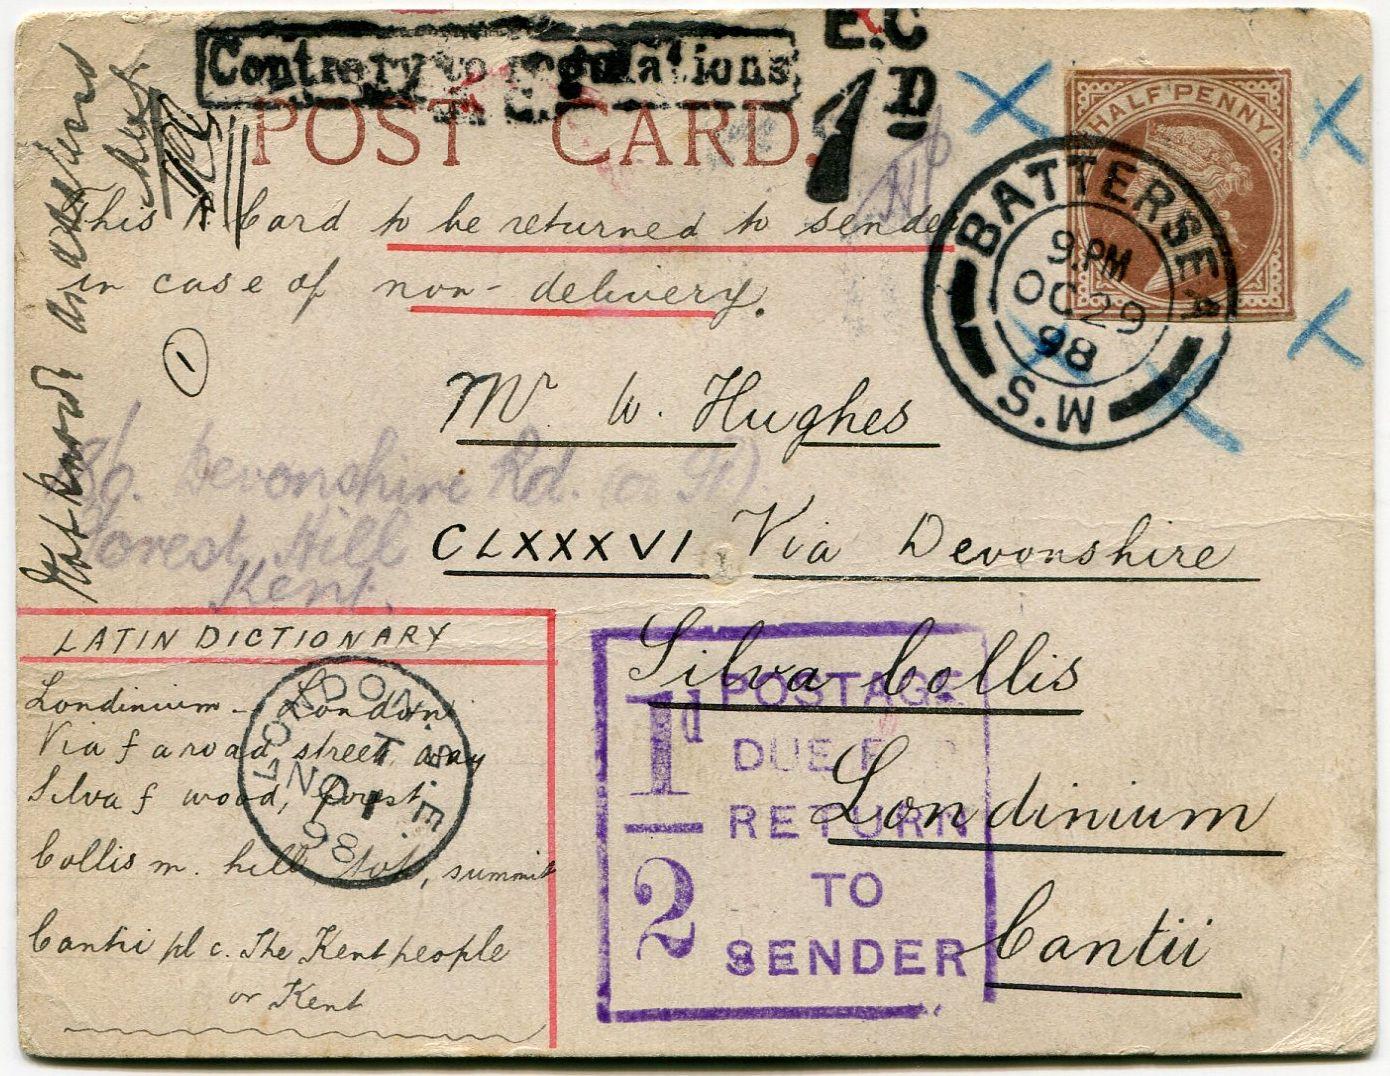 Contrary to regulations
E.C
1D
POST CARD.
HALFPENNY
This Card to be returned to sender
in case of non-delivery.
1
BATTERSEA
9.PM
OC29
98
S.W
Not known as addressed
Mr W. Hughes
86. Devonshire Rd. (or St).
Forest Hill
Kent.
CLXXXVI Via Devonshire
Silva Collis
Londinium
Cantii
LATIN DICTIONARY
Londinium - London
Via f a road, street, way
Silva f wood, forest
Collis m. hill top, summit
Cantii pl c. The Kent people
or Kent
LONDON. S.E.
T
NO 1
98
1d
2
POSTAGE
DUE FOR
RETURN
TO
SENDER